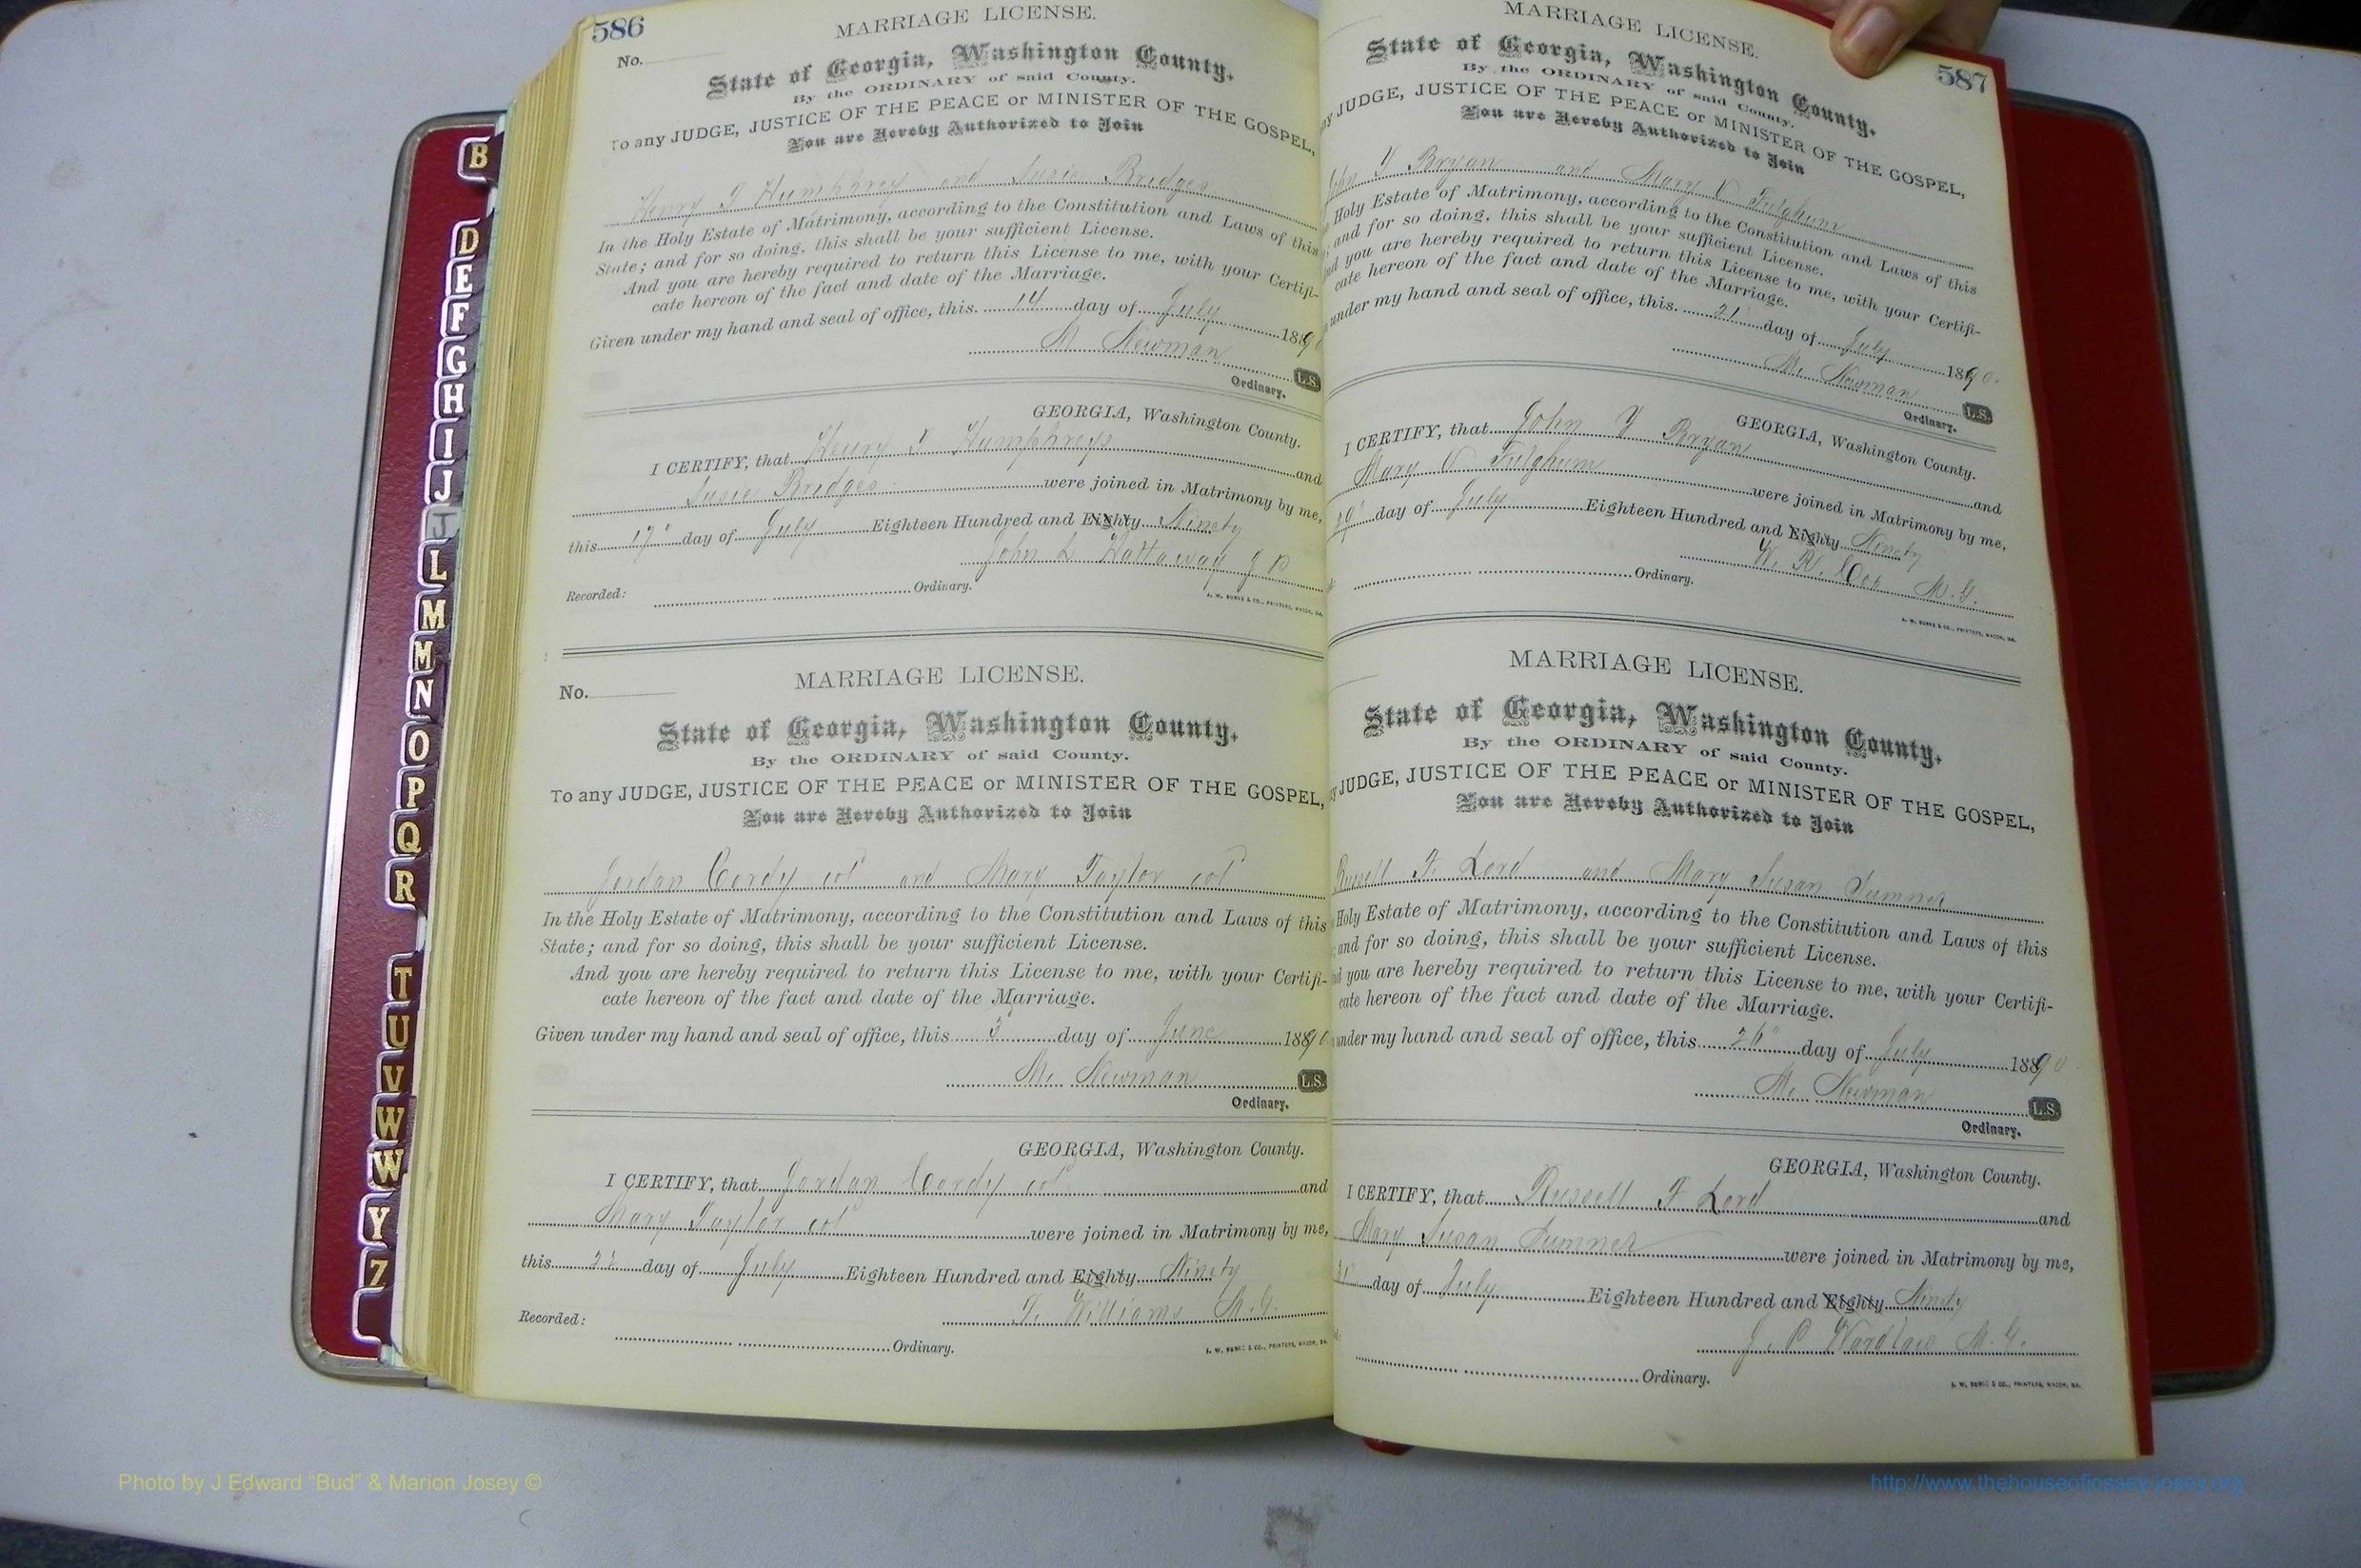 586
MARRIAGE LICENSE.
No.
State of Georgia, Washington County.
By the ORDINARY of said County.
To any JUDGE, JUSTICE OF THE PEACE or MINISTER OF THE GOSPEL,
You are Hereby Authorized to Join
Henry T Humphrey and Susie Bridges
In the Holy Estate of Matrimony, according to the Constitution and Laws of this
State; and for so doing, this shall be your sufficient License.
And you are hereby required to return this License to me, with your Certifi-
cate hereon of the fact and date of the Marriage.
Given under my hand and seal of office, this 14 day of July 1890
M. Newman
L.S.
Ordinary.
GEORGIA, Washington County.
I CERTIFY, that Henry T Humphreys and
Susie Bridges were joined in Matrimony by me,
this 17" day of July Eighteen Hundred and Eighty Ninety
John L Hattaway J P
Recorded: Ordinary.
J. W. BURKE & CO., PRINTERS, MACON, GA.
MARRIAGE LICENSE.
No.
State of Georgia, Washington County.
By the ORDINARY of said County.
To any JUDGE, JUSTICE OF THE PEACE or MINISTER OF THE GOSPEL,
You are Hereby Authorized to Join
Jordan Cordy col and Mary Taylor col
In the Holy Estate of Matrimony, according to the Constitution and Laws of this
State; and for so doing, this shall be your sufficient License.
And you are hereby required to return this License to me, with your Certifi-
cate hereon of the fact and date of the Marriage.
Given under my hand and seal of office, this 3 day of June 1890
M. Newman
L.S.
Ordinary.
GEORGIA, Washington County.
I CERTIFY, that Jordan Cordy col and
Mary Taylor col were joined in Matrimony by me,
this 22 day of July Eighteen Hundred and Eighty Ninety
T. Williams M.G.
Recorded: Ordinary.
J. W. BURKE & CO., PRINTERS, MACON, GA.
587
MARRIAGE LICENSE.
State of Georgia, Washington County.
By the ORDINARY of said County.
JUDGE, JUSTICE OF THE PEACE or MINISTER OF THE GOSPEL,
You are Hereby Authorized to Join
John Y Bryan and Mary V Fulghum
Holy Estate of Matrimony, according to the Constitution and Laws of this
; and for so doing, this shall be your sufficient License.
you are hereby required to return this License to me, with your Certifi-
cate hereon of the fact and date of the Marriage.
under my hand and seal of office, this 21 day of July 1890.
M. Newman
L.S.
Ordinary.
GEORGIA, Washington County.
I CERTIFY, that John Y Bryan and
Mary V Fulghum were joined in Matrimony by me,
day of July Eighteen Hundred and Eighty Ninety
W. R. Cox M.G.
Ordinary.
J. W. BURKE & CO., PRINTERS, MACON, GA.
MARRIAGE LICENSE.
State of Georgia, Washington County.
By the ORDINARY of said County.
JUDGE, JUSTICE OF THE PEACE or MINISTER OF THE GOSPEL,
You are Hereby Authorized to Join
Russell F. Lord and Mary Susan Sumner
Holy Estate of Matrimony, according to the Constitution and Laws of this
; and for so doing, this shall be your sufficient License.
you are hereby required to return this License to me, with your Certifi-
cate hereon of the fact and date of the Marriage.
under my hand and seal of office, this 26" day of July 1890
M. Newman
L.S.
Ordinary.
GEORGIA, Washington County.
I CERTIFY, that Russell F Lord and
Mary Susan Sumner were joined in Matrimony by me,
day of July Eighteen Hundred and Eighty Ninety
J. P. Wardlaw M.G.
Ordinary.
J. W. BURKE & CO., PRINTERS, MACON, GA.
B
D
E
F
G
H
I
J
J
L
M
M
N
O
P
Q
R
T
U
V
W
W
Y
Z
Photo by J Edward "Bud" & Marion Josey ©
http://www.thehouseofjossey-josey.org